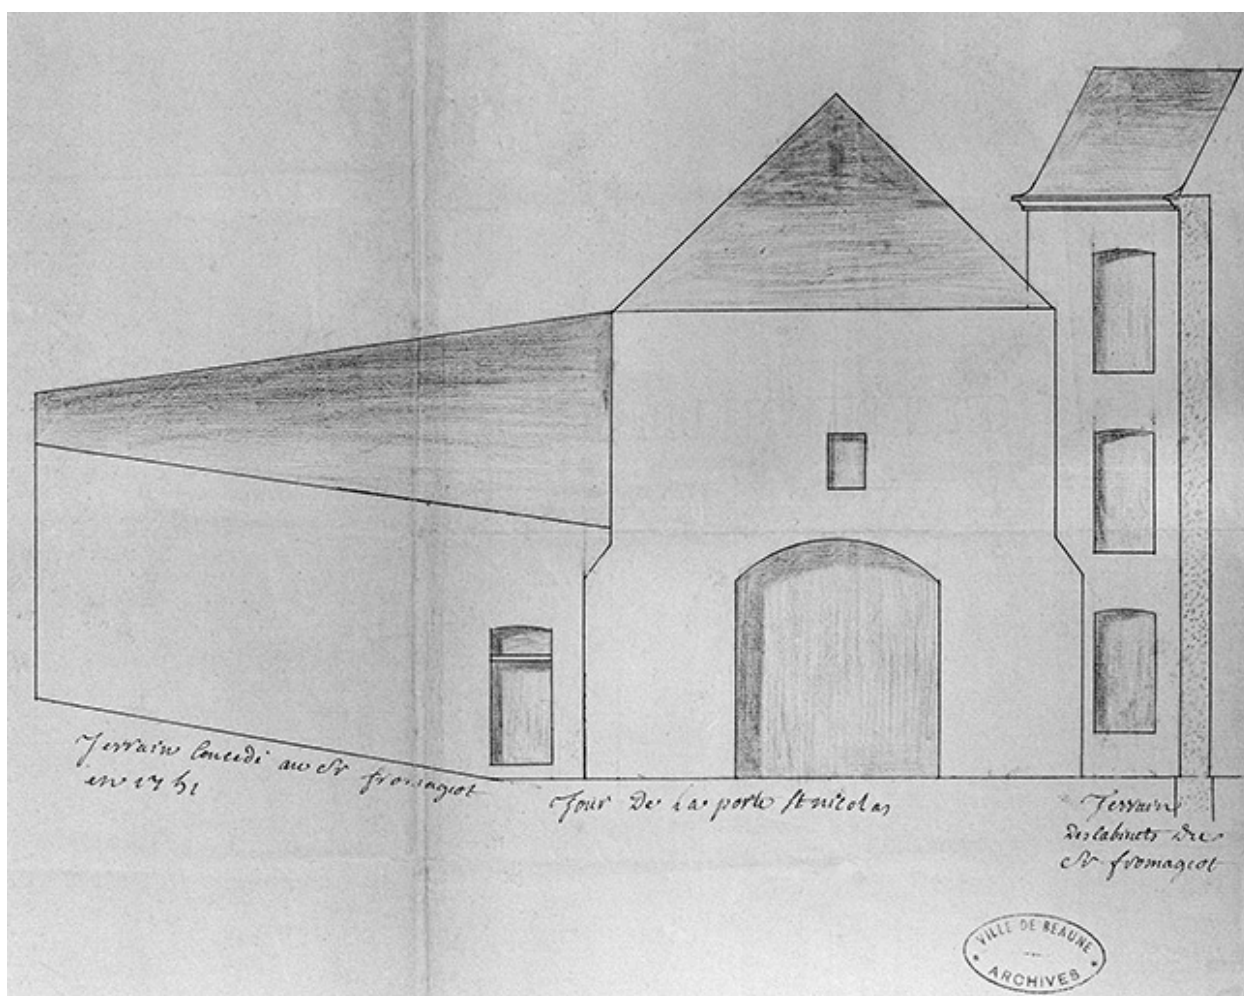 Terrain Concedé au Sr fromageot
en 17
Tour De La porte St nicolas
Terrain
Des Cabinets Du
Sr fromageot
VILLE DE BEAUNE
ARCHIVES